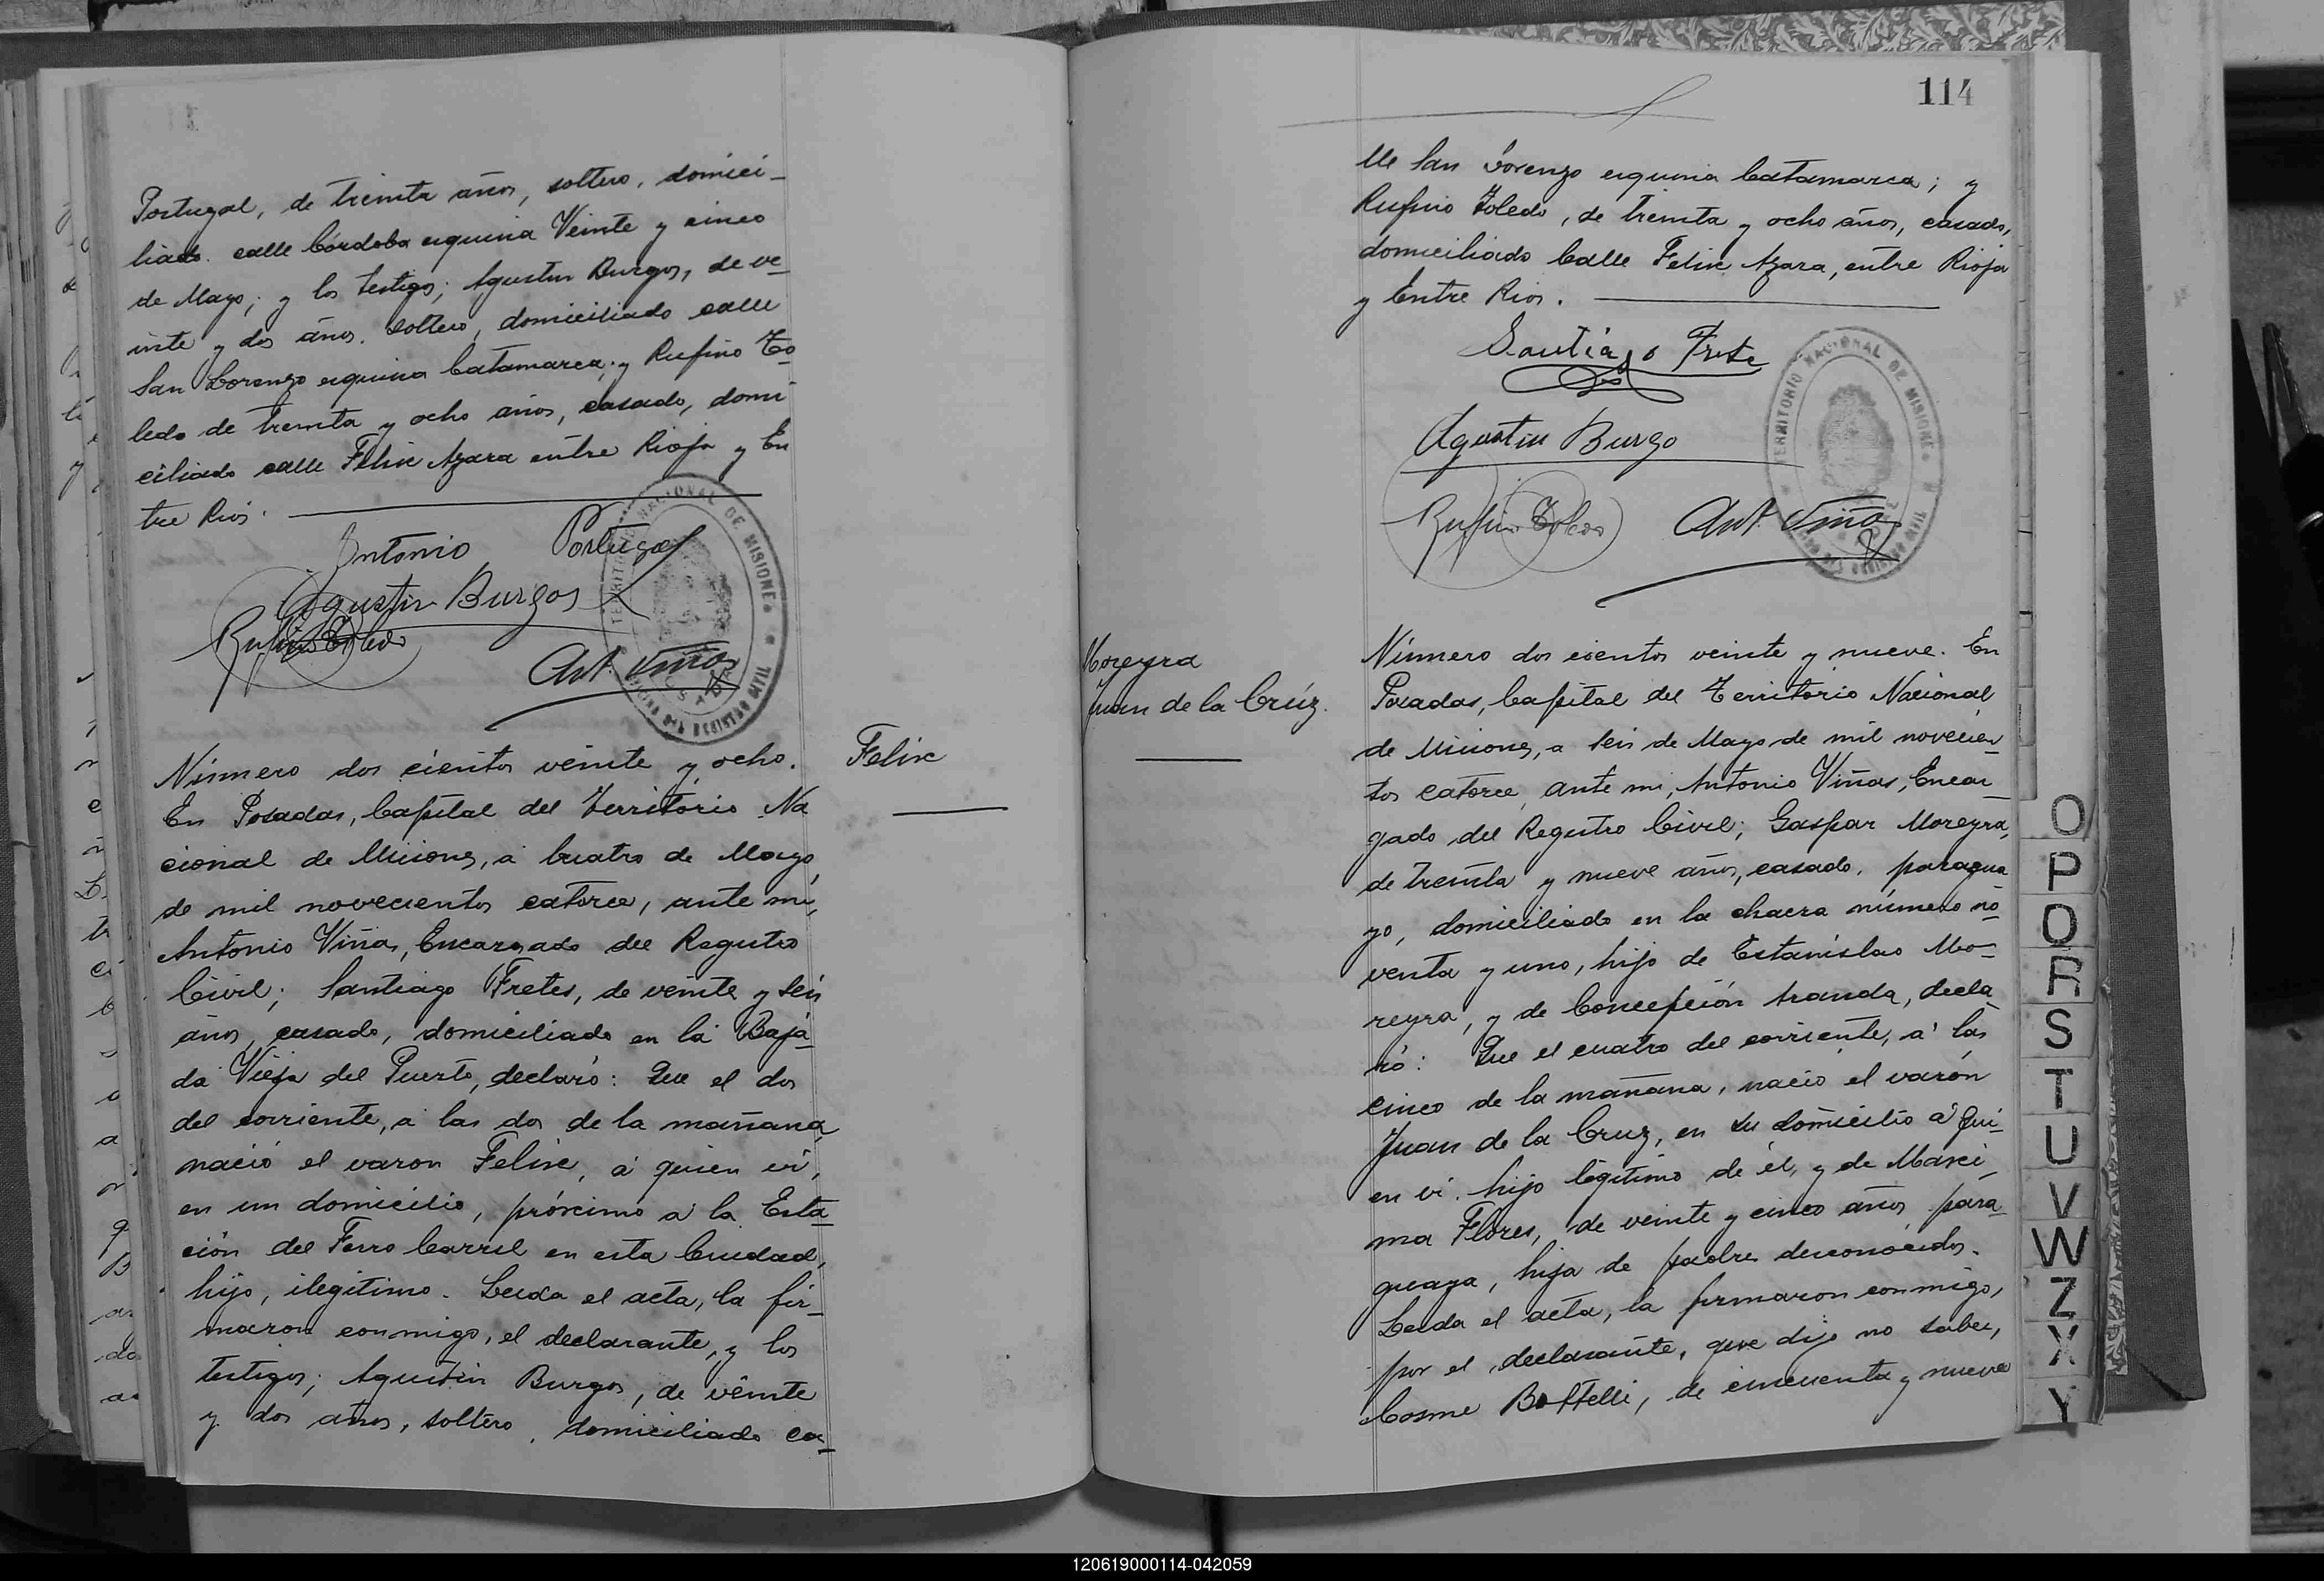 Portugal, de treinta años, soltero, domici-
liado calle Córdoba esquina Veinte y cinco
de Mayo; y los testigos; Agustin Burgos, de ve-
inte y dos años, soltero, domiciliado calle
San Lorenzo esquina Catamarca; y Rufino To-
ledo de treinta y ocho años, casado, domi-
ciliado calle Felix Azara entre Rioja y En
tre Rios.
Antonio Portugal
Agustin Burgos
Rufino Toledo
Ant. Viñas
TERRITORIO NACIONAL DE MISIONES
OFICINA DEL REGISTRO CIVIL
Número dos cientos veinte y ocho.
En Posadas, Capital del Territorio Na
cional de Misiones, a cuatro de Mayo,
de mil novecientos catorce, ante mí,
Antonio Viñas, Encargado del Registro
Civil; Santiago Fretes, de veinte y seis
años, casado, domiciliado en la Baja-
da Vieja del Puerto, declaró: Que el dos
del corriente, a las dos de la mañana,
nació el varon Felix, á quien ví,
en un domicilio, próximo a la Esta-
ción del Ferro Carril en esta Ciudad,
hijo, ilegitimo. Leida el acta, la fir-
maron conmigo, el declarante, y los
testigos; Agustin Burgos, de veinte
y dos años, soltero, domiciliado ca-
Felix
114
lle San Lorenzo esquina Catamarca; y
Rufino Toledo, de treinta y ocho años, casado,
domiciliado Calle Felix Azara, entre Rioja
y Entre Rios.
Santiago Frete
Agustin Burgo
Rufino Toledo
Ant. Viñas
TERRITORIO NACIONAL DE MISIONES
OFICINA DEL REGISTRO CIVIL
Moreyra
Juan de la Crúz.
Número dos cientos veinte y nueve. En
Posadas, Capital del Territorio Nacional
de Misiones, a seis de Mayo de mil novecien-
tos catorce, ante mi, Antonio Viñas, Encar-
gado del Registro Civil; Gaspar Moreyra,
de treinta y nueve años, casado, paragua-
yo, domiciliado en la chacra número no-
venta y uno, hijo de Estanislao Mo-
reyra, y de Concepción Aranda, decla-
ró: Que el cuatro del corriente, a las
cinco de la mañana, nació el varón
Juan de la Cruz, en su domicilio a qui-
en ví. hijo legitimo de él, y de Maxi-
ma Flores, de veinte y cinco años, para-
guaya, hija de padres desconocidos.
Leida el acta, la firmaron conmigo,
por el declarante, que dijo no saber,
Cosme Bottelli, de cincuenta y nueve
O
P
Q
R
S
T
U
V
W
Z
X
Y
120619000114-042059